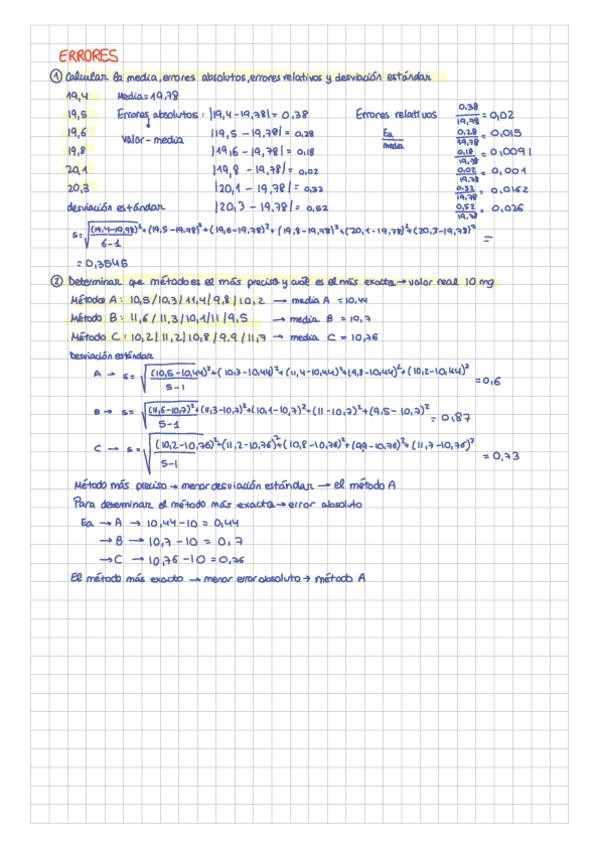 ERRORES
① Calcular la media, errores absolutos, errores relativos y desviación estándar
19,4 Media = 19,78
19,5 Errores absolutos: |19,4 - 19,78| = 0,38 Errores relativos 0,38/19,78 = 0,02
19,6 valor - media |19,5 - 19,78| = 0,28 Ea/media 0,28/19,78 = 0,015
19,8 |19,6 - 19,78| = 0,18 0,18/19,78 = 0,0091
20,1 |19,8 - 19,78| = 0,02 0,02/19,78 = 0,001
20,3 |20,1 - 19,78| = 0,32 0,32/19,78 = 0,0162
desviación estándar |20,3 - 19,78| = 0,52 0,52/19,78 = 0,026
s = √((19,4-19,78)² + (19,5-19,78)² + (19,6-19,78)² + (19,8-19,78)² + (20,1-19,78)² + (20,3-19,78)² / 6-1) =
= 0,3545
② Determinar que método es el más preciso y cuál es el más exacto → valor real 10 mg
Método A: 10,5 / 10,3 / 11,4 / 9,8 / 10,2 → media A = 10,44
Método B: 11,6 / 11,3 / 10,1 / 11 / 9,5 → media B = 10,7
Método C: 10,2 / 11,2 / 10,8 / 9,9 / 11,7 → media C = 10,76
Desviación estándar
A → s = √((10,5-10,44)² + (10,3-10,44)² + (11,4-10,44)² + (9,8-10,44)² + (10,2-10,44)² / 5-1) = 0,6
B → s = √((11,6-10,7)² + (11,3-10,7)² + (10,1-10,7)² + (11-10,7)² + (9,5-10,7)² / 5-1) = 0,87
C → s = √((10,2-10,76)² + (11,2-10,76)² + (10,8-10,76)² + (9,9-10,76)² + (11,7-10,76)² / 5-1) = 0,73
Método más preciso → menor desviación estándar → el método A
Para determinar el método más exacto → error absoluto
Ea → A → 10,44 - 10 = 0,44
→ B → 10,7 - 10 = 0,7
→ C → 10,76 - 10 = 0,76
El método más exacto → menor error absoluto → método A